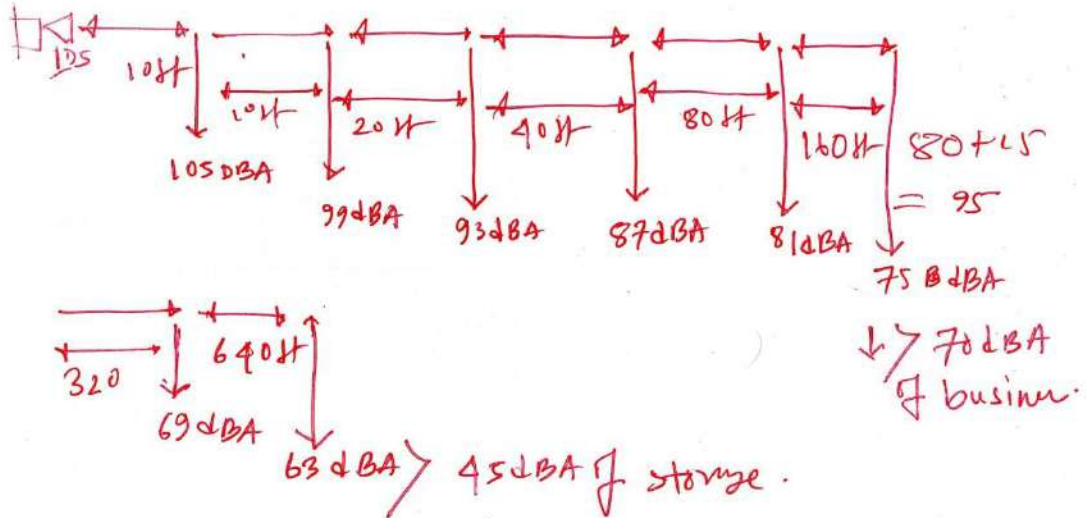 105
10ft
10ft
20ft
40ft
80ft
160ft
80+15
= 95
105 DBA
99dBA
93dBA
87dBA
81dBA
75 B dBA
> 70dBA
of
320
640ft
69dBA
63 dBA > 45dBA of storage.